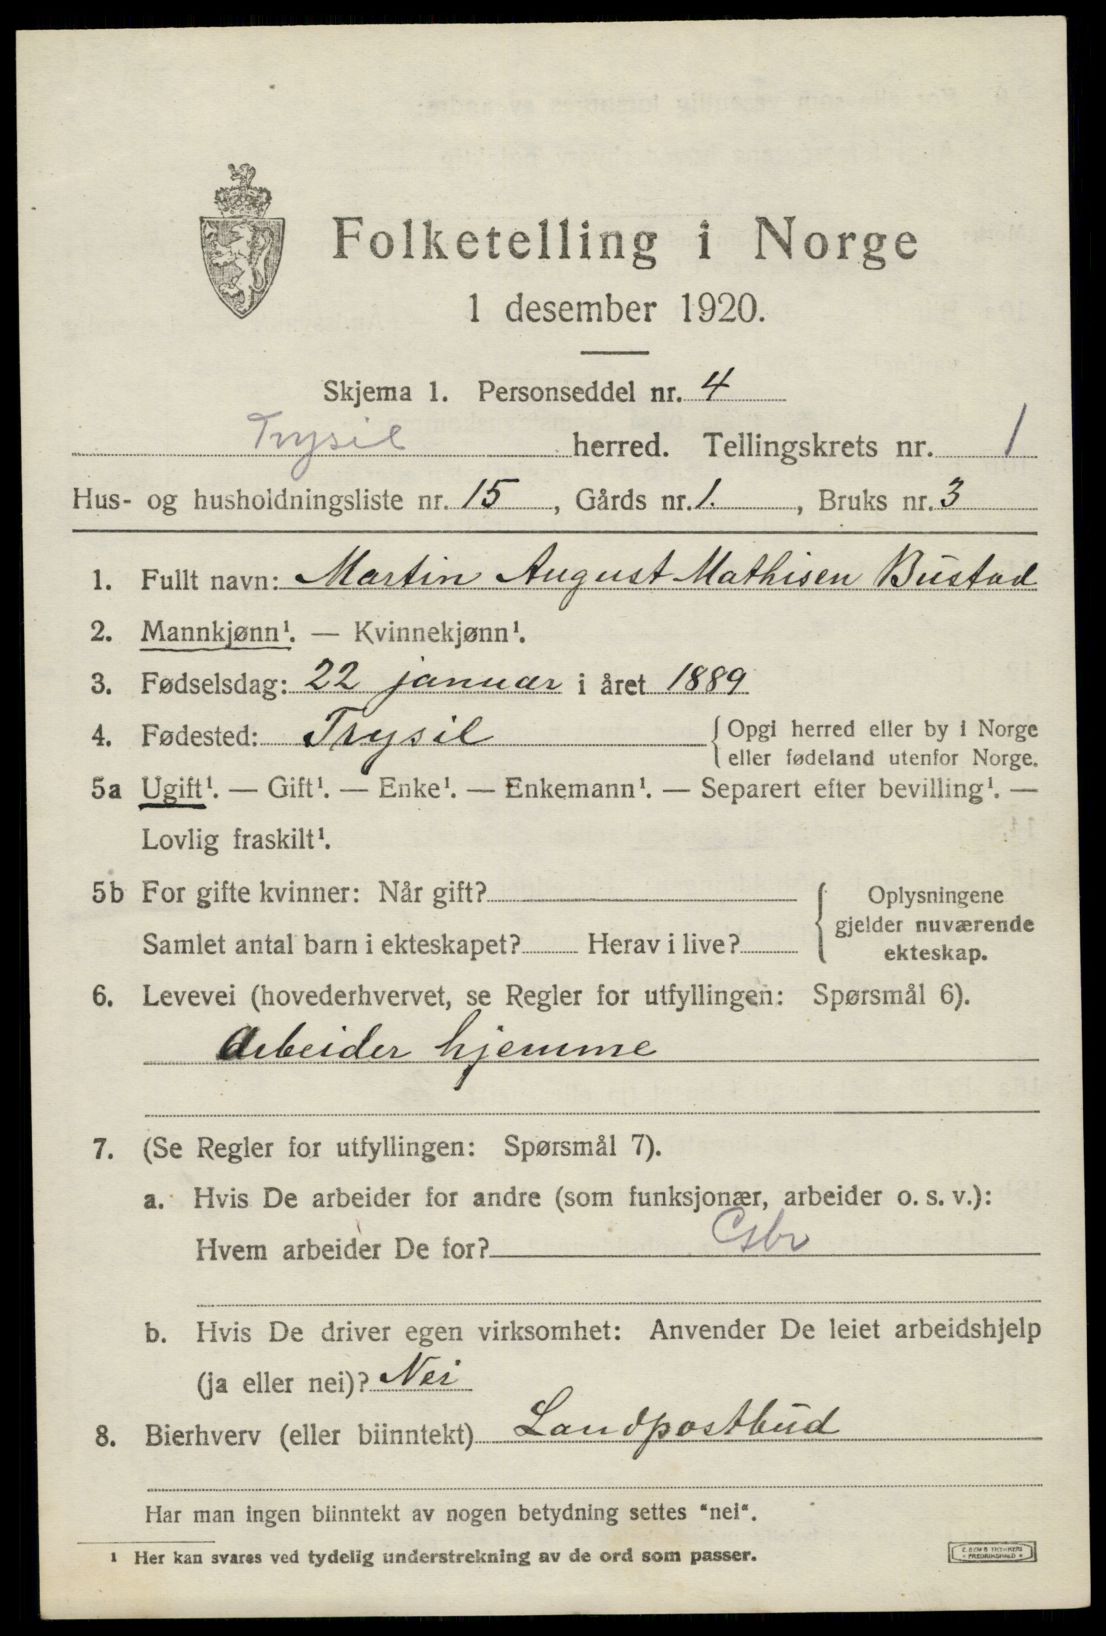 Folketelling i Norge
1 desember 1920.
Skjema 1. Personseddel nr. 4
Trysil herred. Tellingskrets nr. 1
Hus- og husholdningsliste nr. 15, Gårds nr. 1., Bruks nr. 3
1. Fullt navn: Martin August Mathisen Bustad
2. Mannkjønn¹. — Kvinnekjønn¹.
3. Fødselsdag: 22 januar i året 1889
4. Fødested: Trysil {Opgi herred eller by i Norge
eller fødeland utenfor Norge.
5a Ugift¹. — Gift¹. — Enke¹. — Enkemann¹. — Separert efter bevilling¹. —
Lovlig fraskilt¹.
5b For gifte kvinner: Når gift?
Samlet antal barn i ekteskapet? Herav i live?
{Oplysningene
gjelder nuværende
ekteskap.
6. Levevei (hovederhvervet, se Regler for utfyllingen: Spørsmål 6).
Arbeider hjemme
7. (Se Regler for utfyllingen: Spørsmål 7).
a. Hvis De arbeider for andre (som funksjonær, arbeider o. s. v.):
Hvem arbeider De for? Gbr
b. Hvis De driver egen virksomhet: Anvender De leiet arbeidshjelp
(ja eller nei)? Nei
8. Bierhverv (eller biinntekt) Landpostbud
Har man ingen biinntekt av nogen betydning settes "nei".
¹ Her kan svares ved tydelig understrekning av de ord som passer.